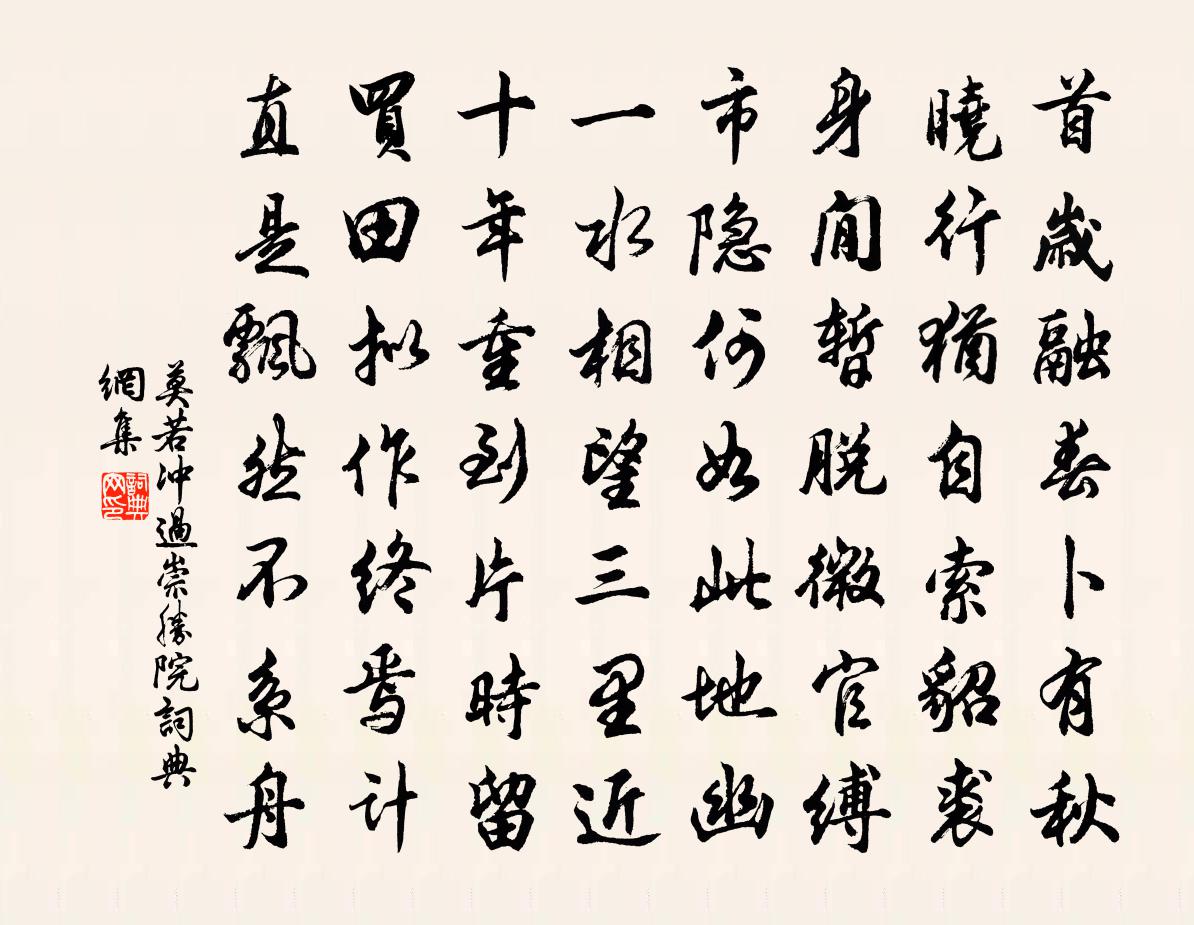 首歲融春卜有秋
曉行猶自索貂裘
身閒暫脫微官縛
市隱何如此地幽
一水相望三里近
十年重到片時留
買田拟作终焉计
直是飄然不系舟
莫若沖過崇勝院詞典
網集
詞典网印